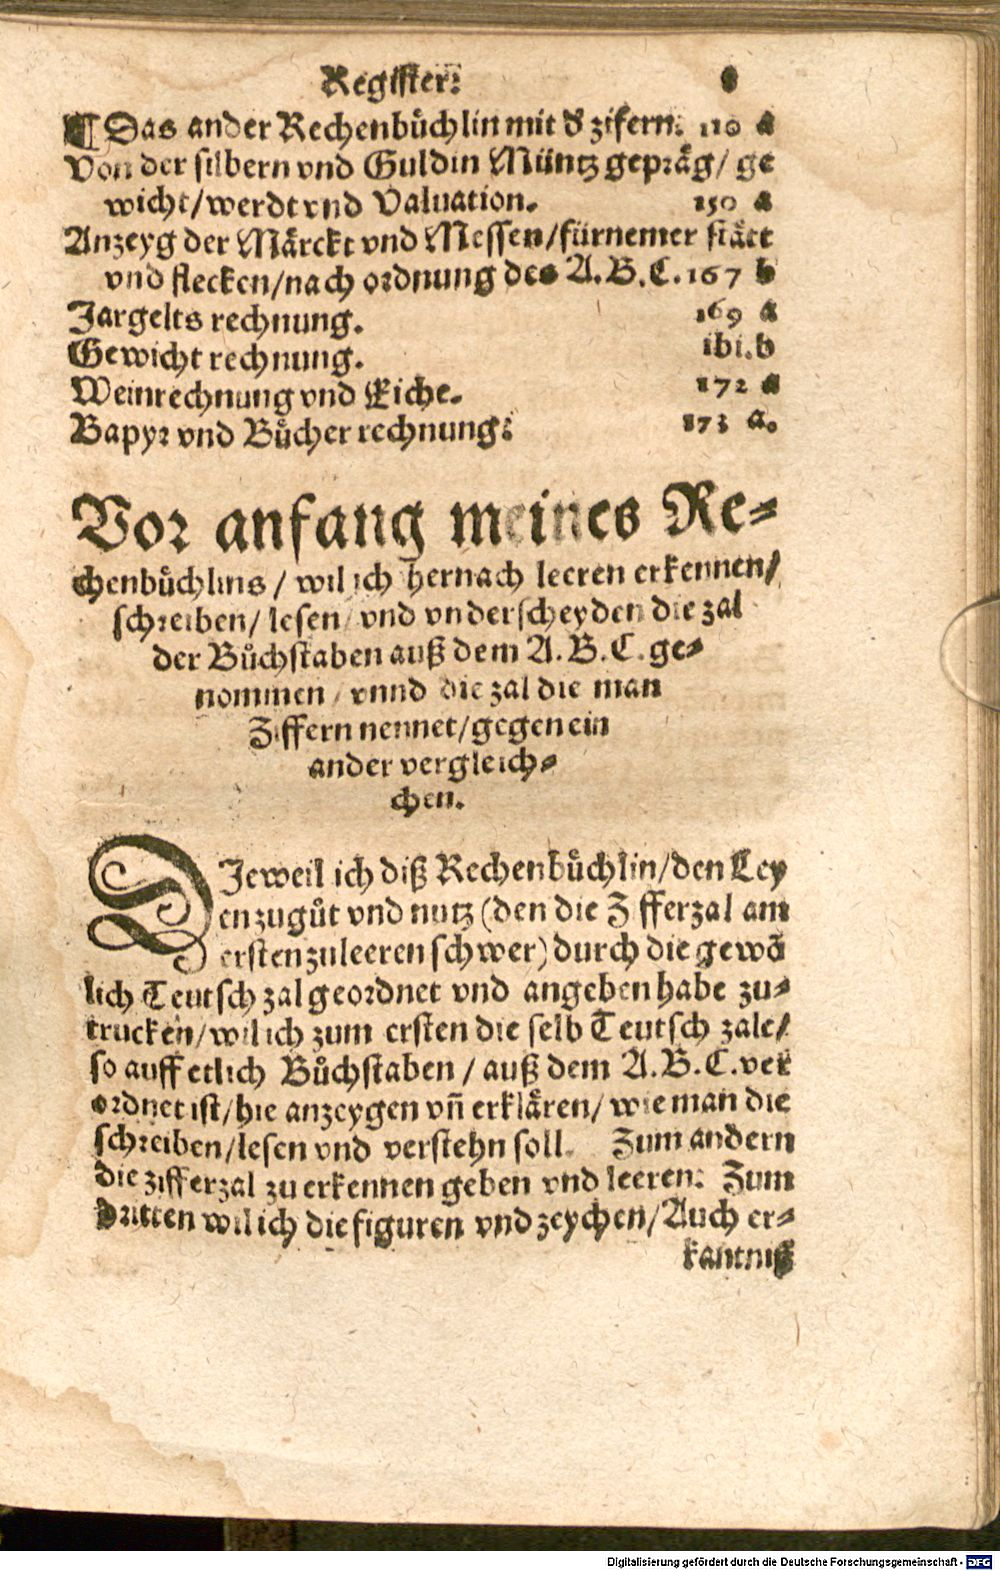 Register. 8
¶ Das ander Rechenbuͤchlin mit d̕ zifern. 110 a
Von der silbern vnd Guldin Muͤntz gepraͤg/ ge
wicht/werdt vnd Valuation. 150 a
Anzeyg der Maͤrckt vnd Messen/fuͤrnemer staͤtt
vnd flecken/nach ordnung des A.B.C. 167 b
Jargelts rechnung. 169 a
Gewicht rechnung. ibi.b
Weinrechnung vnd Eiche. 172 a
Bapyr vnd Buͤcher rechnung. 173 a.
Vor anfang meines Re⸗
chenbuͤchlins / wil ich hernach leeren erkennen/
schreiben/ lesen/ vnd vnderscheyden die zal
der Buͦchstaben auß dem A.B.C. ge⸗
nommen / vnnd die zal die man
Ziffern nennet/gegen ein
ander vergleich⸗
chen.
DJeweil ich diß Rechenbuͤchlin/den Ley
en zuguͦt vnd nutz (den die Zifferzal am
ersten zuleeren schwer) durch die gewoͤ
lich Teutsch zal geordnet vnd angeben habe zu⸗
trucken/wil ich zum ersten die selb Teutsch zale/
so auff etlich Buͦchstaben / auß dem A.B.C.ver
ordnet ist/hie anzeygen vn̄ erklaͤren/ wie man die
schreiben/lesen vnd verstehn soll. Zum andern
die zifferzal zu erkennen geben vnd leeren. Zum
dritten wil ich die figuren vnd zeychen/Auch er⸗
kantniß
Digitalisierung gefördert durch die Deutsche Forschungsgemeinschaft - DFG